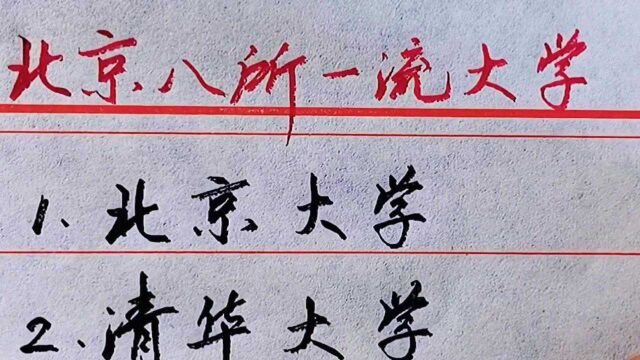 北京八所一流大学
1、北京大学
2、清华大学